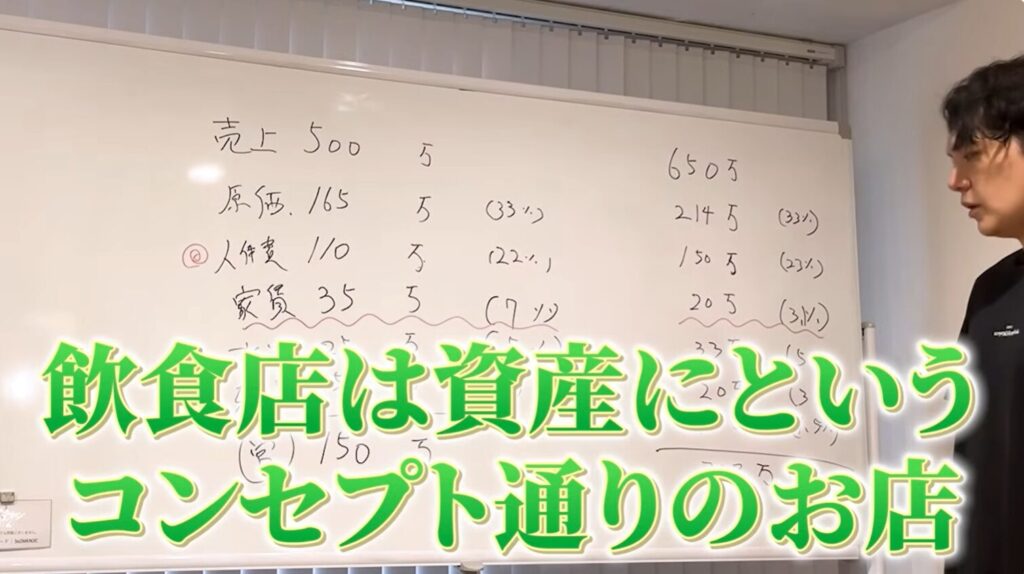 売上 500 万 650万
原価. 165 万 (33%) 214万 (33%)
人件費 110 万 (22%) 150万 (23%)
家賃 35 万 (7%) 20万
33
20
(営) 150 万
飲食店は資産にという
コンセプト通りのお店